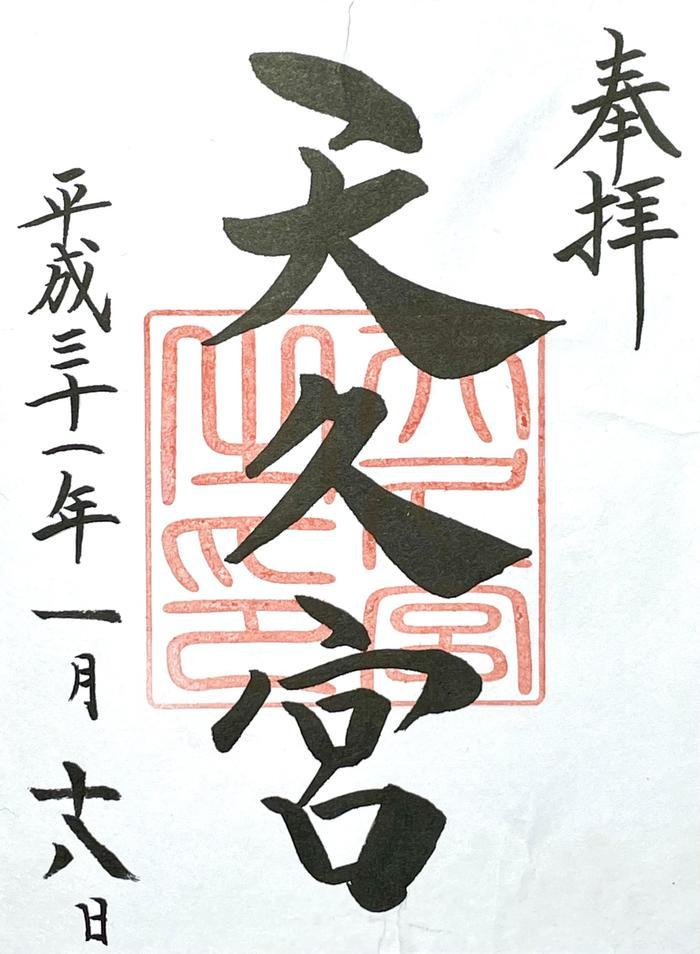 奉拝
天久宮
平成三十一年一月十八日
天久宮之印